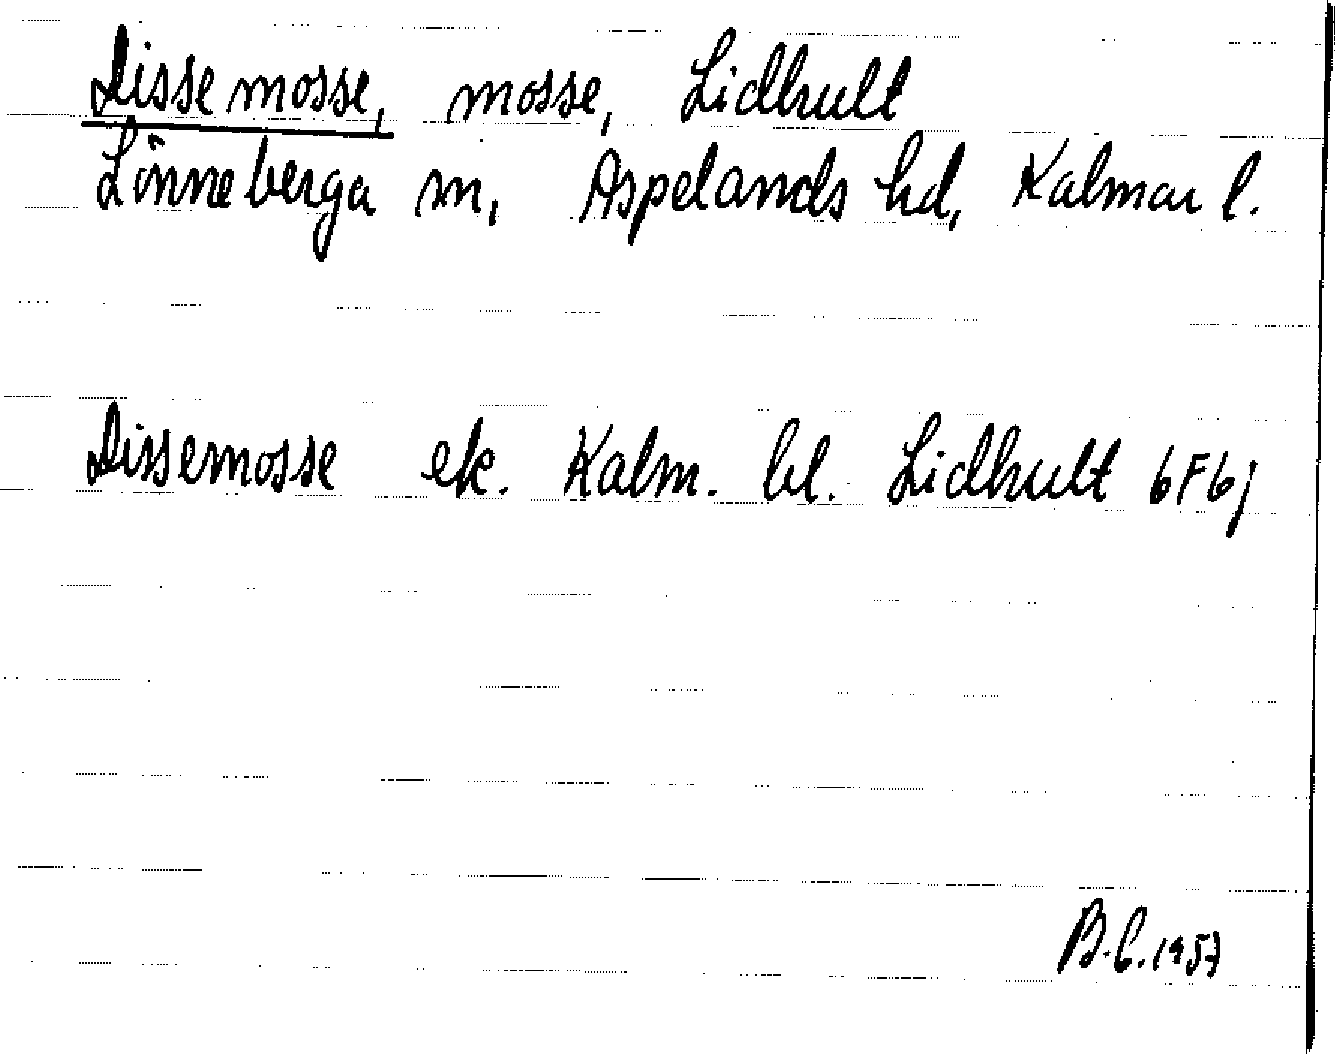 Dissemosse, mosse, Lidhult
Lönneberga sn, Aspelands hd, Kalmar l.
Dissemosse ek. Kalm. bl. Lidhult 6F6j
B.C. 1957